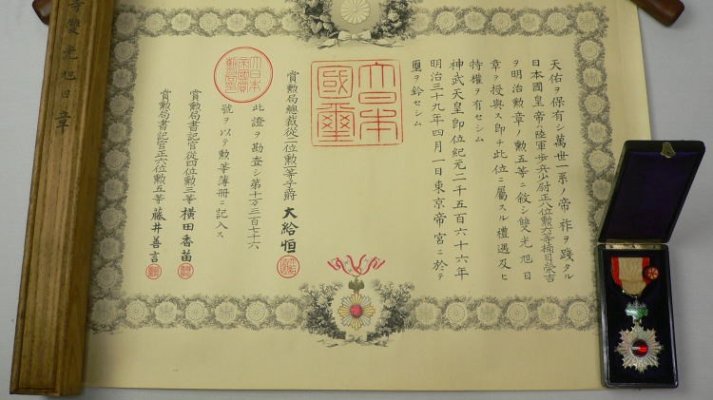 天佑ヲ保有シ萬世一系ノ帝祚ヲ踐タル
日本國皇帝ハ陸軍歩兵少尉正八位勲六等橋目榮吉
ヲ明治勲章ノ勲五等ニ敘シ雙光旭日
章ヲ授與ス即チ此位ニ屬スル禮遇及ヒ
特權ヲ有セシム
神武天皇即位紀元二千五百六十六年
明治三十九年四月一日東京帝宮ニ於テ
璽ヲ鈐セシム
大日本
國璽
賞勲局總裁從二位勲一等子爵 大給恒
此證ヲ勘査シ第十万三百七十六
號ヲ以テ勲等簿冊ニ記入ス
賞勲局書記官從四位勲三等 横田香苗
賞勲局書記官正六位勲五等 藤井善言
等雙光旭日章